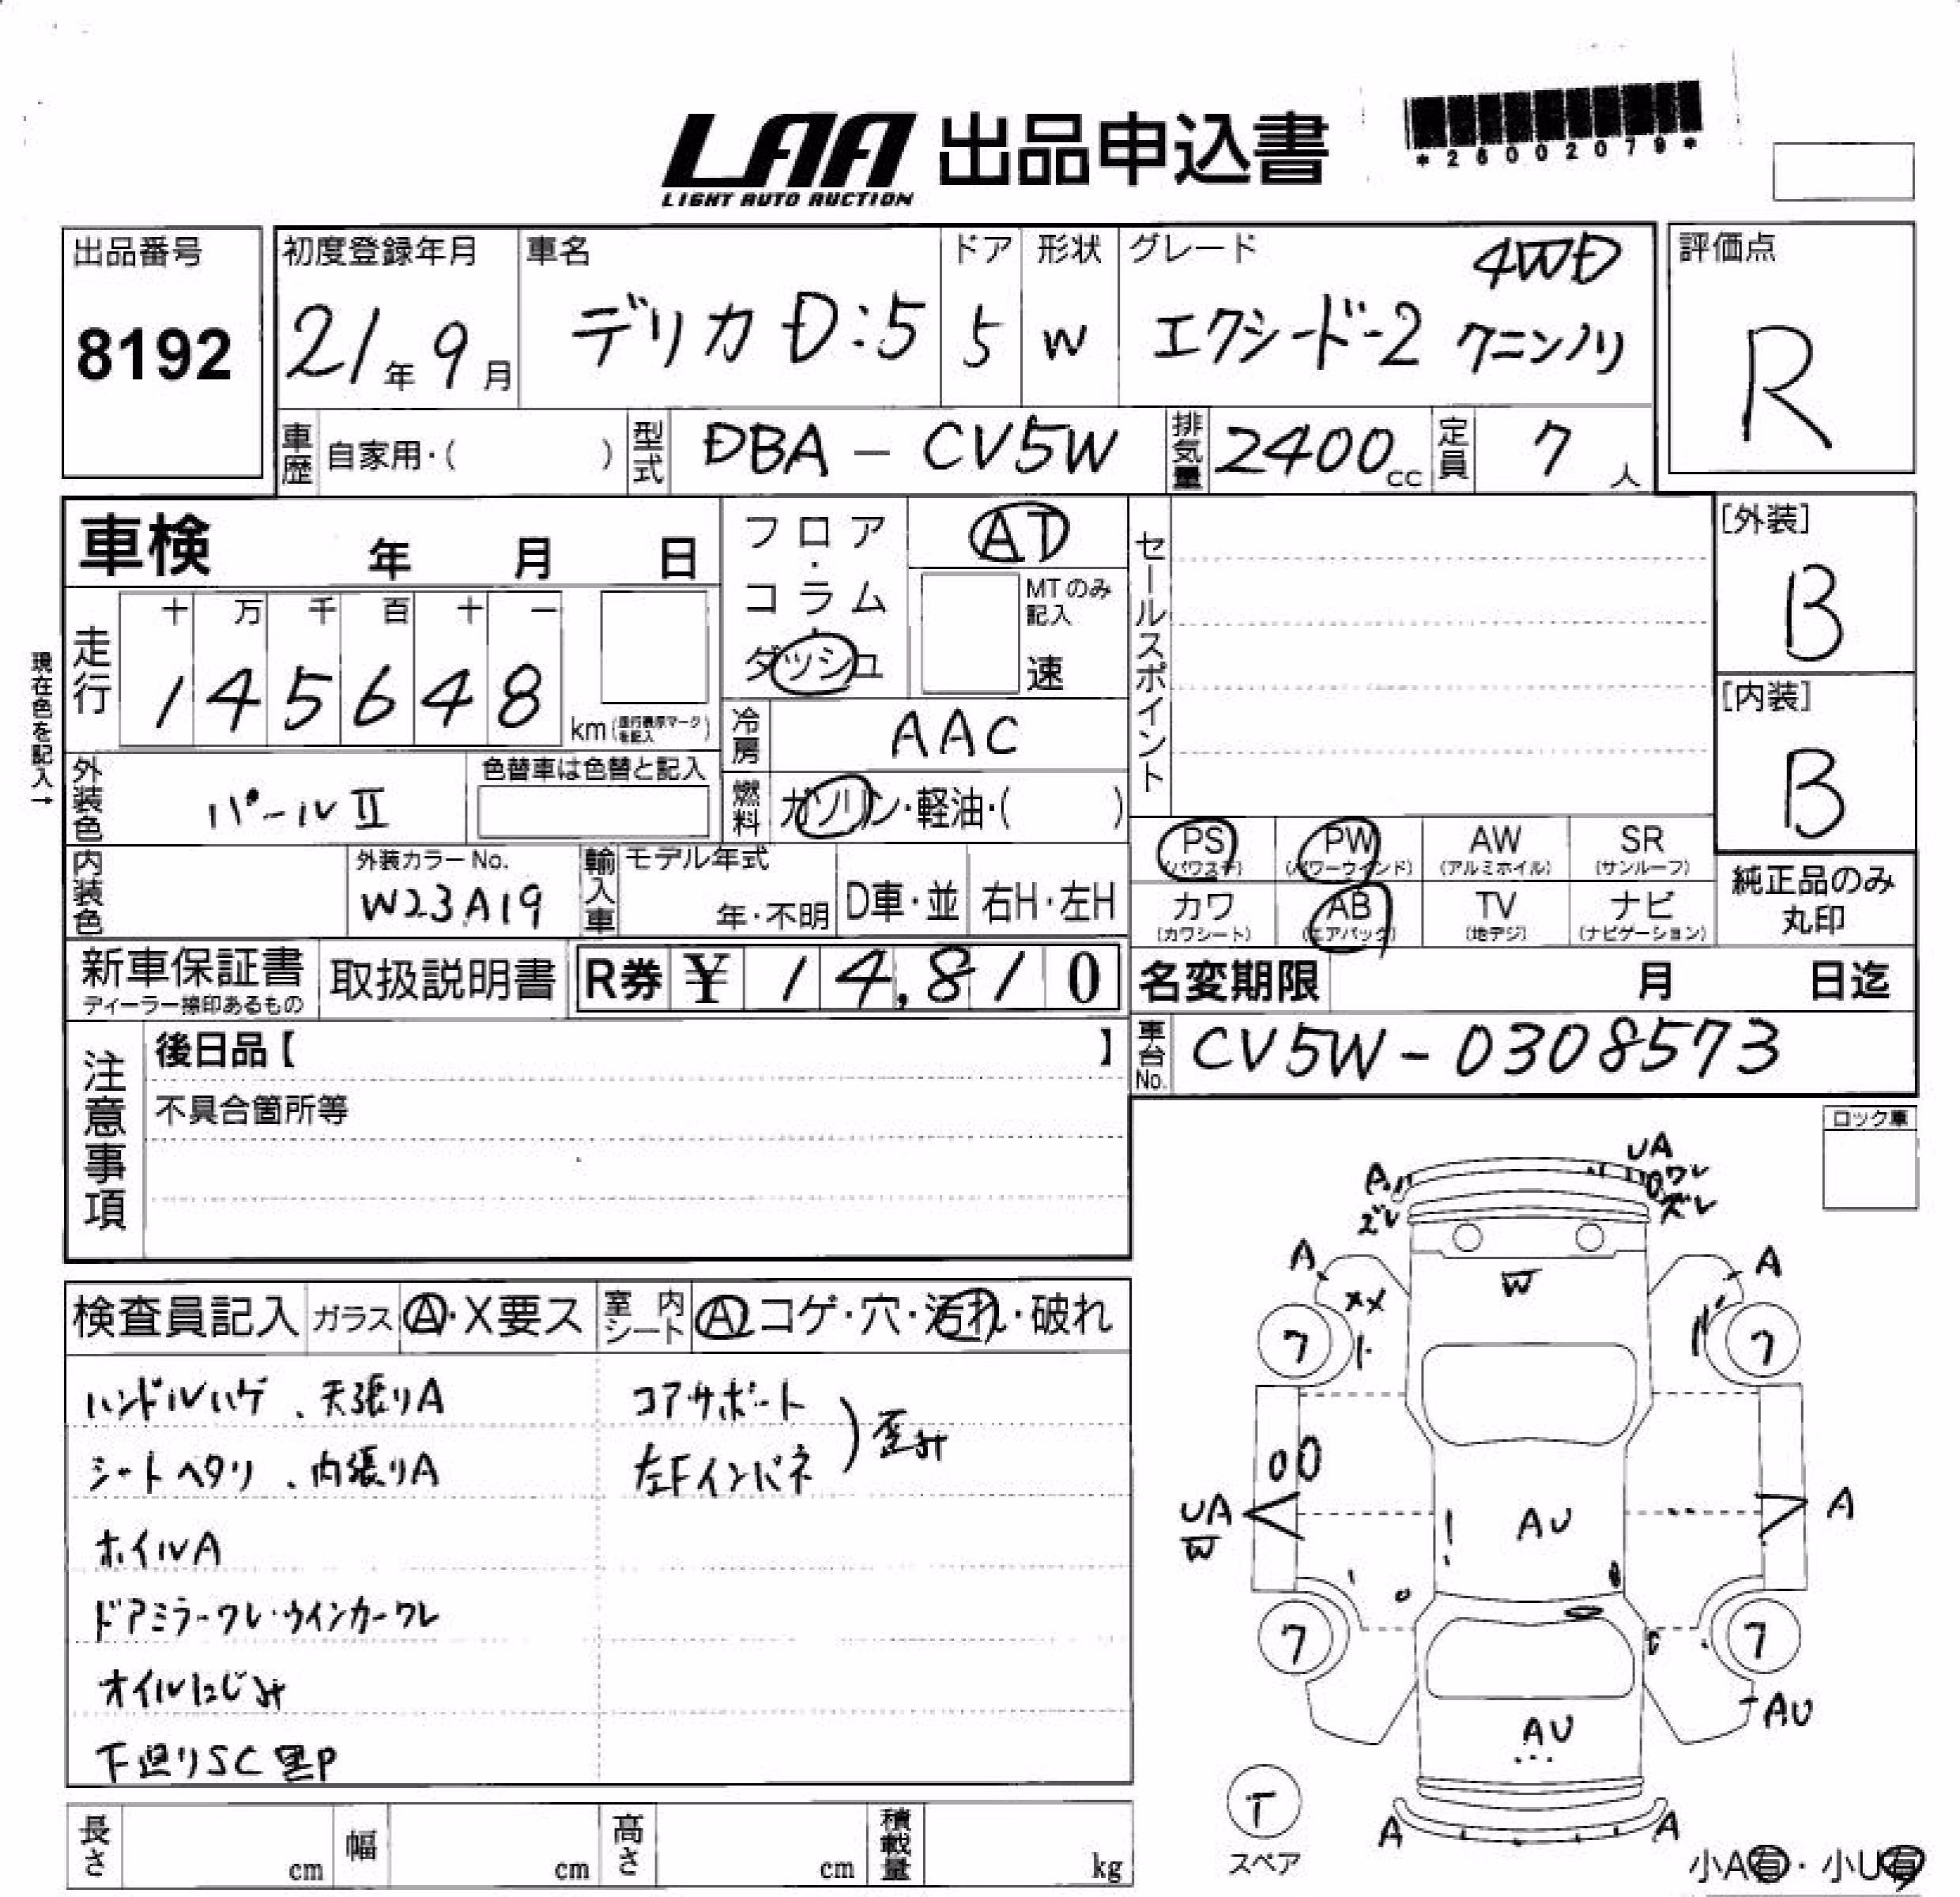 LAA 出品申込書
LIGHT AUTO AUCTION
*26002079*
出品番号
8192
初度登録年月
21年9月
車名
デリカD:5
ドア
5
形状
W
グレード 4WD
エクシード-2 7ニンノリ
評価点
R
車歴 自家用・( )
型式 DBA - CV5W
排気量 2400cc
定員 7人
車検 年 月 日
フロア・コラム・ダッシュ
AT
MTのみ記入
速
セールスポイント
[外装]
B
[内装]
B
現在色を記入→
走行
十 万 千 百 十 一
1 4 5 6 4 8
km
冷房 AAC
外装色 パールⅡ
色替車は色替と記入
燃料 ガソリン・軽油・( )
PS PW AW SR
(パワステ) (パワーウインド) (アルミホイル) (サンルーフ)
カワ AB TV ナビ
(カワシート) (エアバック) (地デジ) (ナビゲーション)
純正品のみ
丸印
内装色
外装カラーNo.
W23A19
輸入車 モデル年式
年・不明 D車・並 右H・左H
新車保証書
ディーラー捺印あるもの
取扱説明書
R券 ¥ 14,810
名変期限 月 日迄
車台No. CV5W-0308573
注意事項
後日品【 】
不具合箇所等
ロック車
検査員記入 ガラス A・X要ス 室内シート A コゲ・穴・汚れ・破れ
ハンドルハゲ、天張りA
シートヘタリ、内張りA
ホイルA
ドアミラーワレ・ウインカーワレ
オイルにじみ
下廻りSC黒P
コアサポート
左Fインパネ
歪み
UA
A ワレ
ズレ ズレ
A A
W
XX
7 7
UA
W
AU
A
7 7
AU
AU
T
スペア
A A
小A有・小U有
長さ cm 幅 cm 高さ cm 積載量 kg